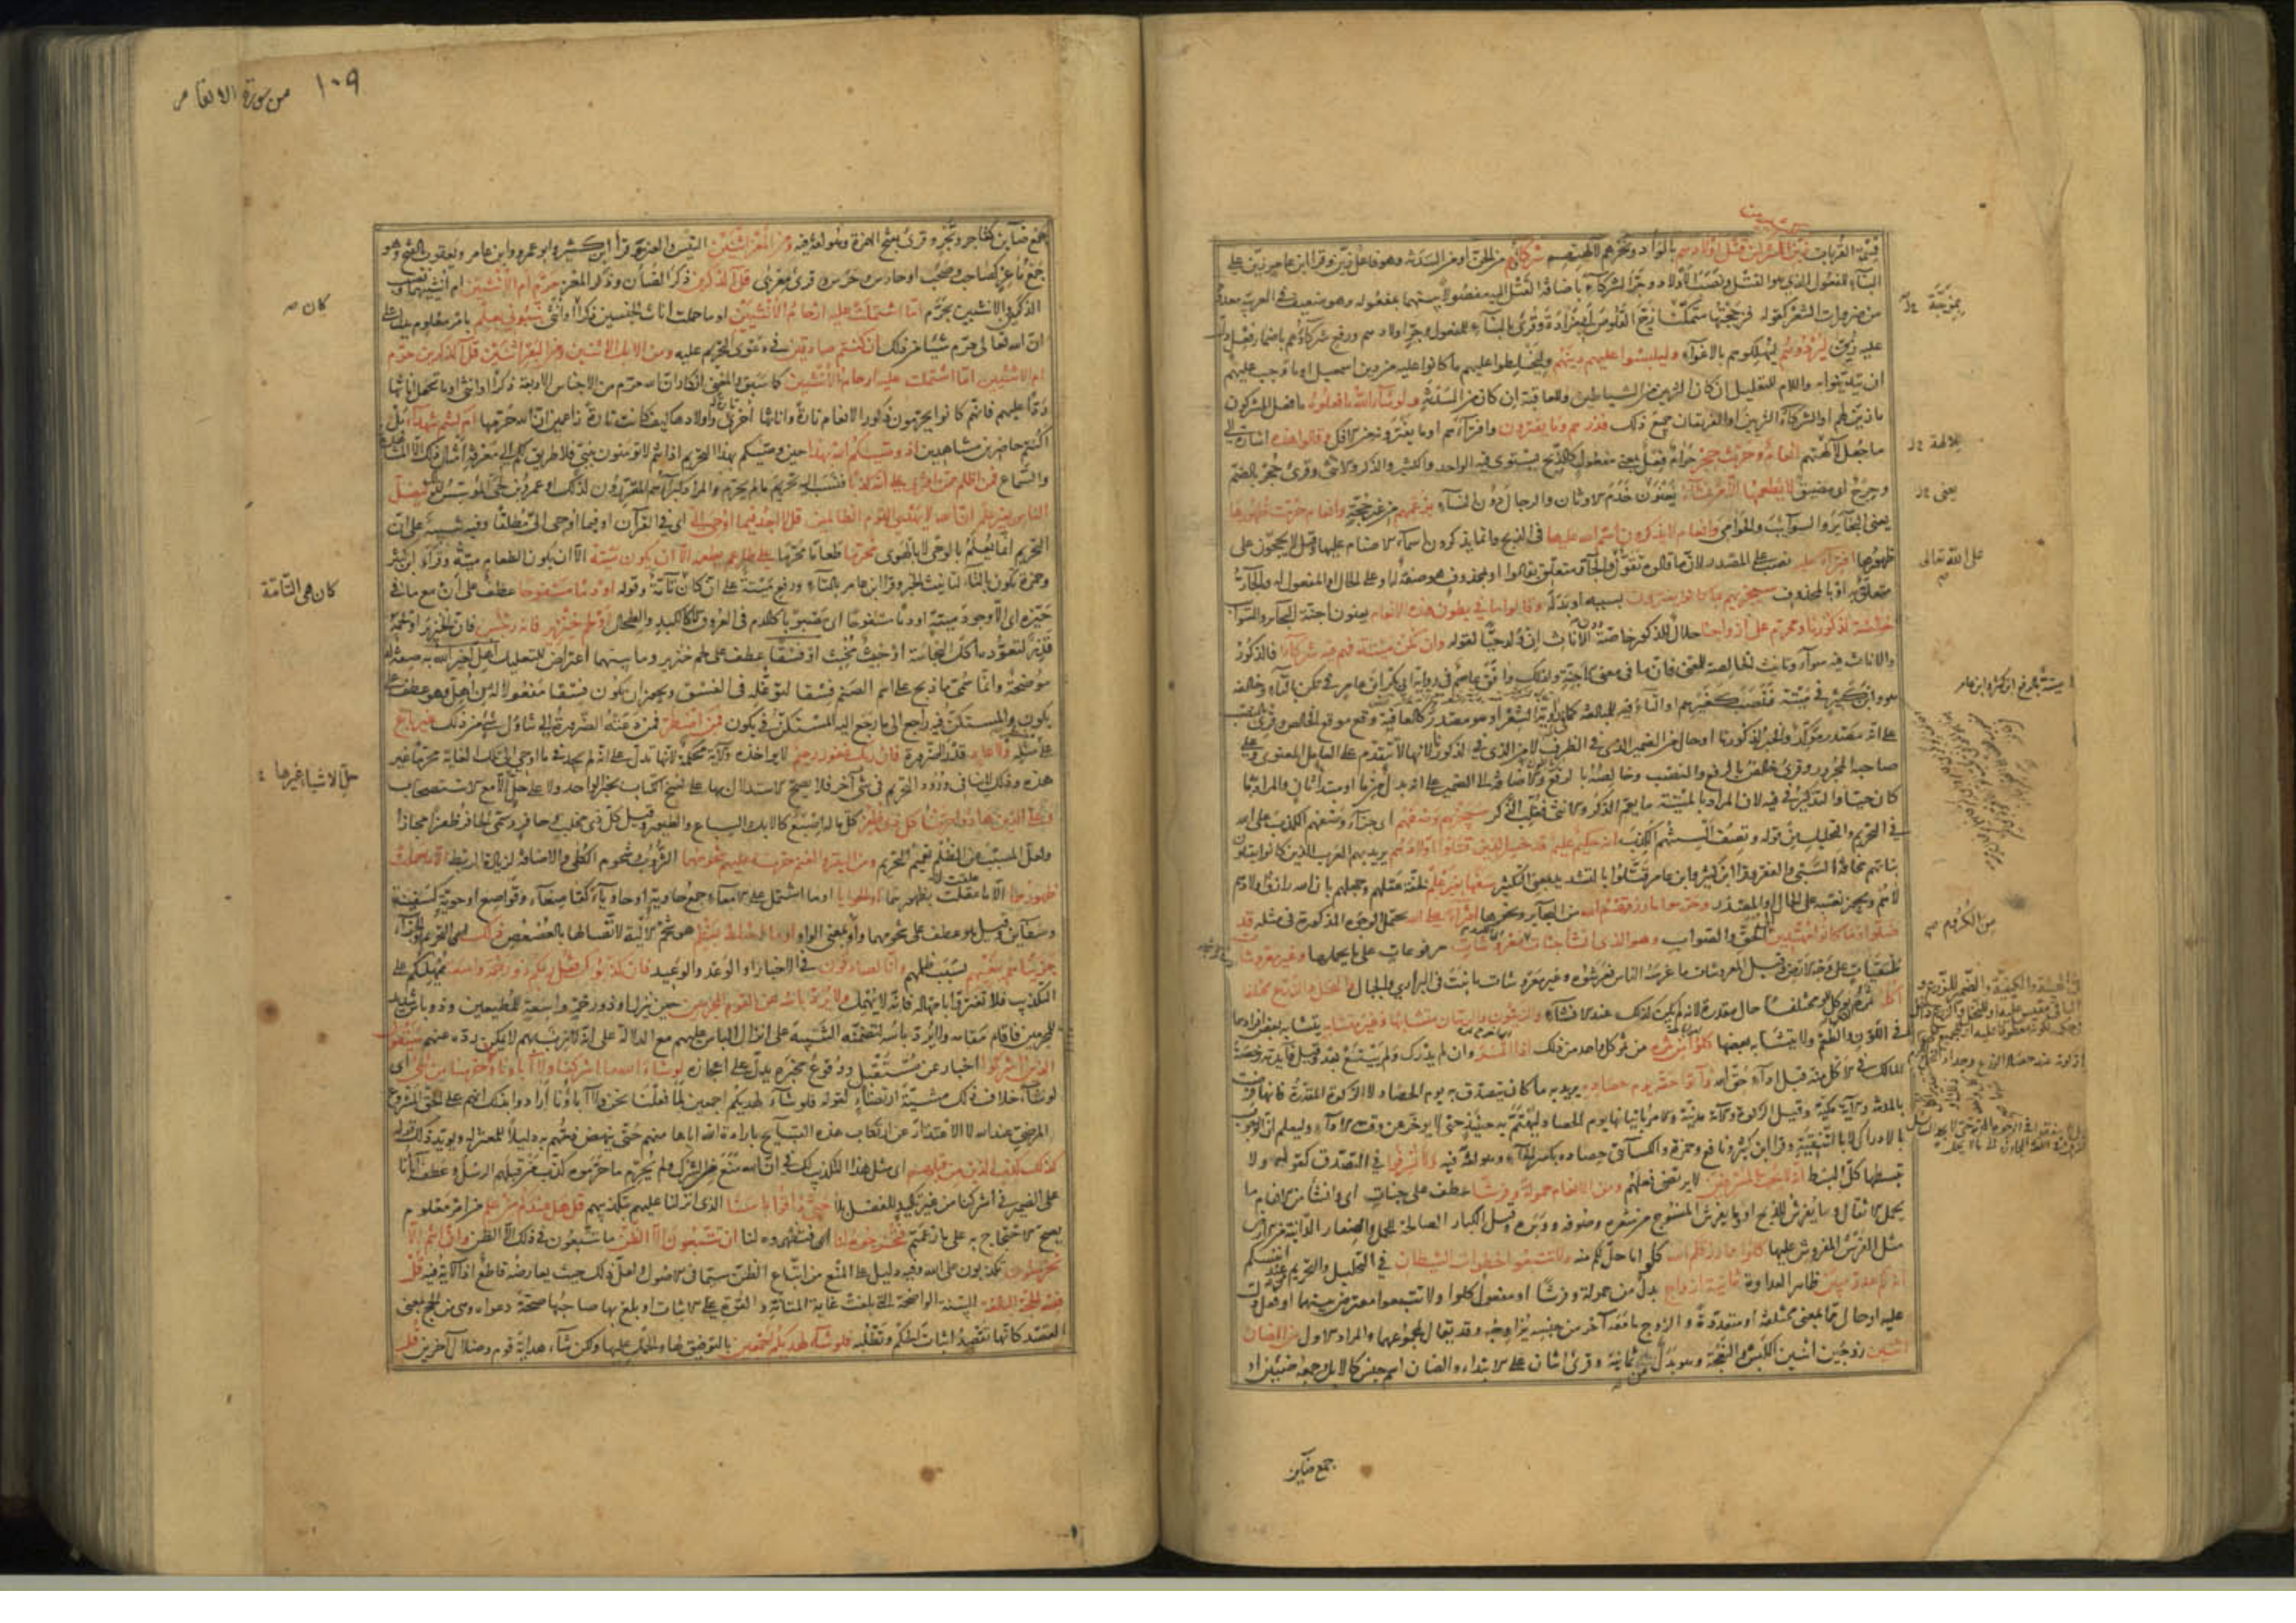 قسمة القربات زيّن للمشركين قتل اولادهم بالوأد ونحرهم لآلهتهم شركاؤهم من الجن او من السدنة وهو فاعل زيّن وقرأ ابن عامر زيّن على
البناء للمفعول الذي هو القتل ونصب الاولاد وجرّ الشركاء باضافة القتل اليه مفصولا بينهما بمفعوله وهو ضعيف في العربية معدود
من ضرورات الشعر كقوله فزججتها متمكنا زجّ القلوص ابي مزادة وقرئ بالبناء للمفعول وجرّ اولادهم ورفع شركاؤهم باضمار فعل دلّ
عليه زيّن ليردوهم ليهلكوهم بالاغواء وليلبسوا عليهم دينهم وليخلطوا عليهم ما كانوا عليه من دين اسمعيل او ما وجب عليهم
ان يتدينوا به واللام للتعليل ان كان التزيين من الشياطين وللعاقبة ان كان من السدنة ولو شاء الله ما فعلوه ما فعل المشركون
ما زيّن لهم او الشركاء التزيين او الفريقان جميع ذلك فذرهم وما يفترون وافتراءهم او ما يفترونه من الافك وقالوا هذه اشارة الى
ما جعل لآلهتهم انعام وحرث حجر حرام فعل بمعنى مفعول كالذبح يستوي فيه الواحد والكثير والذكر والانثى وقرئ حجر بالضم
وحرج اي مضيق لا يطعمها الا من نشاء يعنون خدم الاوثان والرجال دون النساء بزعمهم من غير حجة وانعام حرمت ظهورها
يعني البحائر والسوائب والحوامي وانعام لا يذكرون اسم الله عليها في الذبح وانما يذكرون اسماء الاصنام عليها وقيل لا يحجون على
ظهورها افتراء عليه نصب على المصدر لان ما قالوه تقوّل والجار متعلق بقالوا او بمحذوف هو صفة له او على الحال او المفعول له والجار
متعلق به او بالمحذوف سيجزيهم بما كانوا يفترون بسببه او بدله وقالوا ما في بطون هذه الانعام يعنون اجنة البحائر والسوائب
خالصة لذكورنا ومحرّم على ازواجنا حلال للذكور خاصة دون الاناث ان ولد حيا لقوله وان يكن ميتة فهم فيه شركاء فالذكور
والاناث فيه سواء وتانيث الخالصة للمعنى فان ما في معنى الاجنة ولذلك وافق عاصم في رواية ابي بكر ابن عامر في تكن بالتاء وخالفه
هو وابن كثير في ميتة فنصب كغيرهم او التاء فيه للمبالغة كما في راوية الشعر او هو مصدر كالعافية وقع موقع الخالص وقرئ بالنصب
على انه مصدر مؤكد والخبر لذكورنا او حال من الضمير الذي في الظرف لا من الذي في لذكورنا لانها لا تتقدم على العامل المعنوي ولا على
صاحبها المجرور وقرئ خالص بالرفع والنصب وخالصه بالرفع والاضافة الى الضمير على انه بدل من ما او مبتدأ ثان والمراد به ما
كان حيا والتذكير في فيه لان المراد بالميتة ما يعم الذكر والانثى فغلّب الذكر سيجزيهم وصفهم اي جزاء وصفهم الكذب على الله
في التحريم والتحليل من قوله وتصف السنتهم الكذب انه حكيم عليم قد خسر الذين قتلوا اولادهم يريد بهم العرب الذين كانوا يقتلون
بناتهم مخافة السبي والفقر وقرأ ابن كثير وابن عامر قتّلوا بالتشديد بمعنى التكثير سفها بغير علم لخفة عقلهم وجهلهم بان الله رازق اولادهم
لا هم ويجوز نصبه على الحال والمصدر وحرّموا ما رزقهم الله من البحائر ونحوها افتراء على الله يحتمل الوجوه المذكورة في مثله قد
ضلّوا وما كانوا مهتدين الى الحق والصواب وهو الذي انشأ جنات معروشات مرفوعات على ما يحملها وغير معروشات
ملقيات على وجه الارض وقيل المعروشات ما غرسه الناس فعرشوه وغير معروشات ما نبت في البراري والجبال والنخل والزرع مختلفا
اكله ثمره حال مقدرة لانه لم يكن كذلك عند الانشاء والزيتون والرمان متشابها وغير متشابه يتشابه بعض افرادهما
في اللون والطعم ولا يتشابه بعضها كلوا من ثمره من ثمر كل واحد من ذلك اذا اثمر وان لم يدرك ولم يينع بعد وقيل فائدته رخصة
المالك في الاكل منه قبل اداء حق الله وآتوا حقه يوم حصاده يريد به ما كان يتصدق به يوم الحصاد لا الزكوة المقدرة فانها فرضت
بالمدينة والآية مكية وقيل الزكوة والآية مدنية والامر باتيانها يوم الحصاد ليهتم به حينئذ حتى لا يؤخر عن وقت الاداء وليعلم ان الوجوب
بالادراك لا بالتنقية وقرأ ابن كثير ونافع وحمزة والكسائي حصاده بكسر الحاء وهو لغة فيه ولا تسرفوا في التصدق كقوله ولا
تبسطها كل البسط انه لا يحب المسرفين لا يرتضي فعلهم ومن الانعام حمولة وفرشا عطف على جنات اي وانشأ من الانعام ما
يحمل الاثقال وما يفرش للذبح او ما يفرش المنسوج من شعره وصوفه ووبره وقيل الكبار الصالحة للحمل والصغار الدانية من الارض
مثل الفرش المفروش عليها كلوا مما رزقكم الله كلوا ما حلّ لكم منه ولا تتبعوا خطوات الشيطان في التحليل والتحريم من عند انفسكم
انه لكم عدو مبين ظاهر العداوة ثمانية ازواج بدل من حمولة وفرشا او مفعول كلوا ولا تتبعوا معترض بينهما او فعل دلّ
عليه او حال من ما بمعنى مختلفة او متعددة والزوج ما معه آخر من جنسه يزاوجه وقد يقال لمجموعهما والمراد الاول من الضان
اثنين زوجين اثنين الكبش والنعجة وهو بدل من ثمانية وقرئ اثنان على الابتداء والضان اسم جنس كالابل وجمعه ضئين او
بمزجّة
لآلهة
يعني
على الله تعالى
ميتة بالرفع ابن كثير وابن عامر
من الكروم
جمع ضاين
١٠٩
من سورة الانعام
جمع ضاين كتاجر وتجر وقرئ بفتح الهمزة وهو لغة فيه ومن المعز اثنين التيس والعنز وقرأ ابن كثير وابو عمرو وابن عامر ويعقوب بالفتح وهو
جمع ماعز كصاحب وصحب او حارس وحرس وقرئ المعزى قل آلذكرين ذكر الضأن وذكر المعز حرّم ام الانثيين ام انثييهما ونصب
الذكرين والانثيين بحرّم امّا اشتملت عليه ارحام الانثيين او ما حملت اناث الجنسين ذكرا او انثى نبّئوني بعلم بامر معلوم يدل على
ان الله تعالى حرّم شيئا من ذلك ان كنتم صادقين في دعوى التحريم عليه ومن الابل اثنين ومن البقر اثنين قل آلذكرين حرّم
ام الانثيين امّا اشتملت عليه ارحام الانثيين كما سبق والمعنى انكار ان الله حرّم من الاجناس الاربعة ذكرا او انثى او ما تحمل اناثها
ردّا عليهم فانهم كانوا يحرّمون ذكور الانعام تارة واناثها اخرى واولادها كيف كانت تارة زاعمين ان الله حرّمها ام كنتم شهداء بل
اكنتم حاضرين مشاهدين اذ وصّيكم الله بهذا حين وصّيكم بهذا التحريم اذ انتم لا تؤمنون بنبي فلا طريق لكم الى معرفة امثال ذلك الا المشاهدة
والسماع فمن اظلم ممن افترى على الله كذبا فنسب اليه تحريم ما لم يحرّم والمراد كبراؤهم المقررون لذلك او عمرو بن لحي المؤسس له ليضل
الناس بغير علم ان الله لا يهدي القوم الظالمين قل لا اجد فيما اوحي اليّ اي في القرآن او فيما اوحي اليّ مطلقا وفيه تنبيه على ان
التحريم انما يعلم بالوحي لا بالهوى محرّما طعاما محرّما على طاعم يطعمه الا ان يكون ميتة الا ان يكون الطعام ميتة وقرأ ابن كثير
وحمزة تكون بالتاء لتانيث الخبر وقرأ ابن عامر بالتاء ورفع ميتة على ان كان تامة وقوله او دما مسفوحا عطف على ان مع ما في
حيّزه اي الا وجود ميتة او دما مسفوحا اي مصبوبا كالدم في العروق لا كالكبد والطحال او لحم خنزير فانه رجس فان الخنزير او لحمه
قذر لتعوّده اكل النجاسة او خبيث مخبث او فسقا عطف على لحم خنزير وما بينهما اعتراض للتعليل اهلّ لغير الله به صفة له
موضحة وانما سمي ما ذبح على اسم الصنم فسقا لتوغله في الفسق ويجوز ان يكون فسقا مفعولا له من اهلّ وهو عطف على
يكون والمستكن فيه راجع الى ما رجع اليه المستكن في يكون فمن اضطر فمن دعته الضرورة الى تناول شيء من ذلك غير باغ
على مثله ولا عاد قدر الضرورة فان ربك غفور رحيم لا يؤاخذه والآية محكمة لانها تدل على انه لم يجد فيما اوحي الى تلك الغاية محرّما غير
هذه وذلك لا ينافي ورود التحريم في شيء آخر فلا يصح الاستدلال بها على نسخ الكتاب بخبر الواحد ولا على حلّ الا مع الاستصحاب
وعلى الذين هادوا حرّمنا كل ذي ظفر كل ما له اصبع كالابل والسباع والطيور وقيل كل ذي مخلب وحافر وسمي الحافر ظفرا مجازا
ولعل المسبب عن الظلم تعميم التحريم ومن البقر والغنم حرّمنا عليهم شحومهما الثروب وشحوم الكلى والاضافة لزيادة الربط الا ما حملت
ظهورهما الا ما علقت بظهورهما او الحوايا او ما اشتمل على الامعاء جمع حاوية او حاوياء كقاصعاء وقواصع او حوية كسفينة
وسفاين وقيل هو عطف على شحومهما واو بمعنى الواو او ما اختلط بعظم هو شحم الالية لاتصالها بالعصعص ذلك التحريم او الجزاء
جزيناهم ببغيهم بسبب ظلمهم وانا لصادقون في الاخبار او الوعد والوعيد فان كذبوك فقل ربكم ذو رحمة واسعة يمهلكم على
التكذيب فلا تغتروا بامهاله فانه لا يهمل ولا يردّ باسه عن القوم المجرمين حين ينزل او ذو رحمة واسعة للمطيعين وذو باس شديد
للمجرمين فاقام مقامه ولا يردّ باسه لتضمنه التنبيه على انزال الباس عليهم مع الدلالة على انه لازب بهم لا يمكن رده عنهم سيقول
الذين اشركوا اخبار عن مستقبل ووقوع مخبره يدل على اعجازه لو شاء الله ما اشركنا ولا آباؤنا ولا حرّمنا من شيء اي
لو شاء خلاف ذلك مشيئة ارتضاء كقوله فلو شاء لهديكم اجمعين لما فعلنا نحن ولا آباؤنا ارادوا بذلك انهم على الحق المشروع
المرضي عند الله لا الاعتذار عن ارتكاب هذه القبايح بارادة الله اياها منهم حتى ينهض ذمهم به دليلا للمعتزلة ويؤيد ذلك قوله
كذلك كذب الذين من قبلهم اي مثل هذا التكذيب لك في ان الله منع من الشرك ولم يحرّم ما حرّموه كذب من قبلهم الرسل وعطف آباؤنا
على الضمير في اشركنا من غير تأكيد للفصل بلا حتى ذاقوا باسنا الذي انزلنا عليهم بتكذيبهم قل هل عندكم من علم من امر معلوم
يصح الاحتجاج به على ما زعمتم فتخرجوه لنا فتظهروه لنا ان تتبعون الا الظن ما تتبعون في ذلك الا الظن وان انتم الا
تخرصون تكذبون على الله وفيه دليل على المنع من اتباع الظن سيما في الاصول ولعل ذلك حيث يعارضه قاطع اذ الآية فيه قل
فلله الحجة البالغة البينة الواضحة التي بلغت غاية المتانة والقوة على الاثبات او بلغ بها صاحبها صحة دعواه وهي من الحج بمعنى
القصد كانها تقصد اثبات الحكم وتطلبه فلو شاء لهديكم اجمعين بالتوفيق لها والحمل عليها ولكن شاء هداية قوم وضلال آخرين قل
كان
كان هي التامة
حلّ الاشياء غيرها